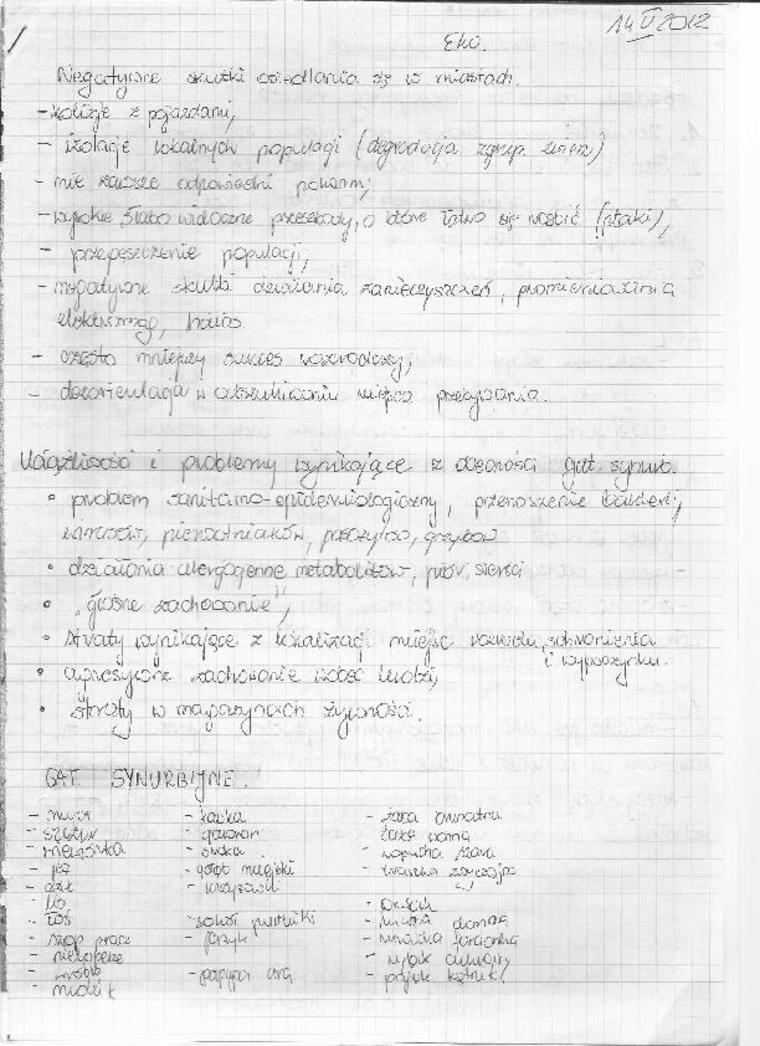 14 V 2012
Eko.
Negatywne skutki osiedlania się w miastach.
- kolizje z pojazdami,
- izolacje lokalnych populacji (degradacja zgrup. zwierz)
- nie zawsze odpowiedni pokarm;
- wysokie, słabo widoczne przeszkody, o które łatwo się rozbić (ptaki),
- przegęszczenie populacji;
- negatywne skutki działania zanieczyszczeń, promieniowania
elektromag, hałas
- często mniejszy sukces rozrodczy;
- dezorientacja w odszukiwaniu miejsca przebywania.
Uciążliwości i problemy wynikające z obecności gat. synurb.
• problem sanitarno-epidemiologiczny, przenoszenie bakterii,
wirusów, pierwotniaków, pasożytów, grzybów
• działania alergogenne metabolitów, piór, sierści
• "głośne zachowanie",
• straty wynikające z lokalizacji miejsc rozrodu, schronienia
i wypoczynku.
• agresywne zachowanie wobec ludzi,
• straty w magazynach żywności.
GAT. SYNURBIJNE.
- mysz
- szczur
- jeż
- dzik
- lis
- łoś
- szop pracz
- nietoperze
- kawka
- gawron
- sroka
- gołąb miejski
- krzyżówki
- jerzyk
- żaba
- ropucha szara
- traszka zwyczajna
- mucha domowa
- rybik cukrowy